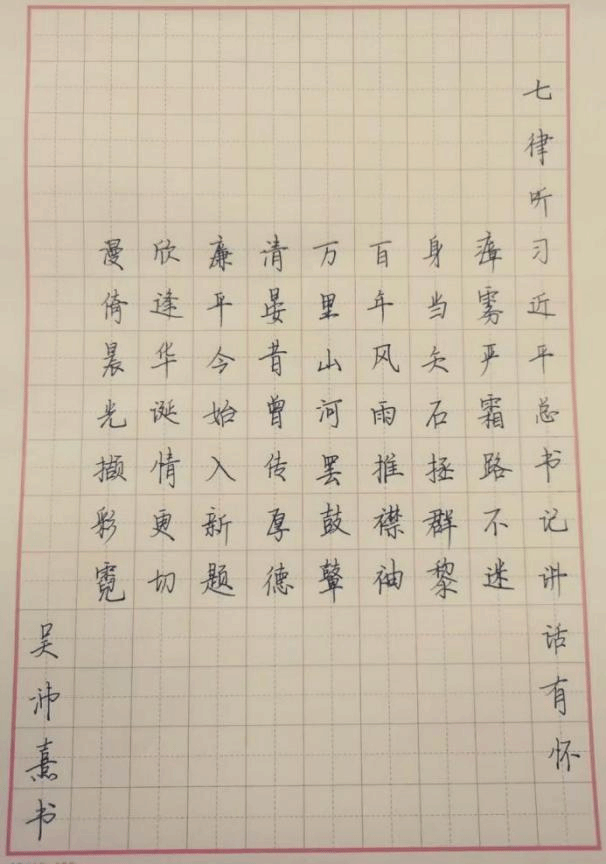 七律听习近平总书记讲话有怀
瘴雾严霜路不迷
身当矢石拯群黎
百年风雨推襟袖
万里山河罢鼓鼙
清晏昔曾传厚德
廉平今始入新题
欣逢华诞情更切
漫倚晨光撷彩霓
吴沛熹书